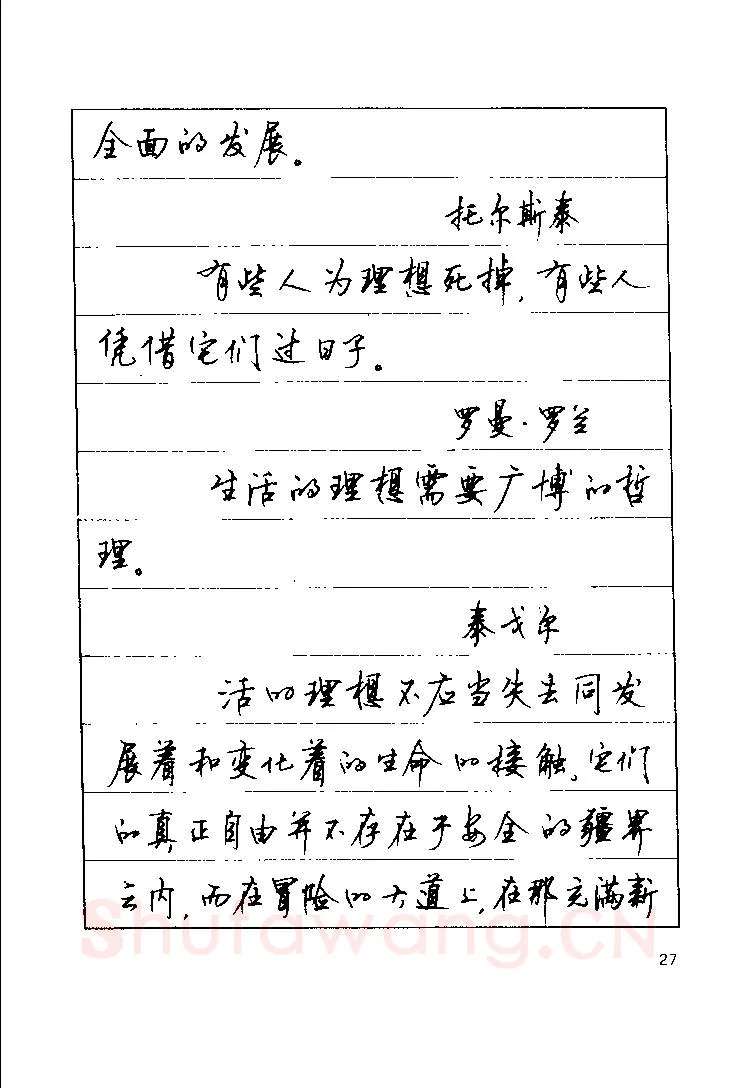 全面的发展。
托尔斯泰
有些人为理想死掉,有些人
凭借它们过日子。
罗曼·罗兰
生活的理想需要广博的哲
理。
泰戈尔
活的理想不应当失去同发
展着和变化着的生命的接触,它们
的真正自由并不存在于安全的疆界
之内,而在冒险的大道上,在那充满新
Shufawang.CN
27